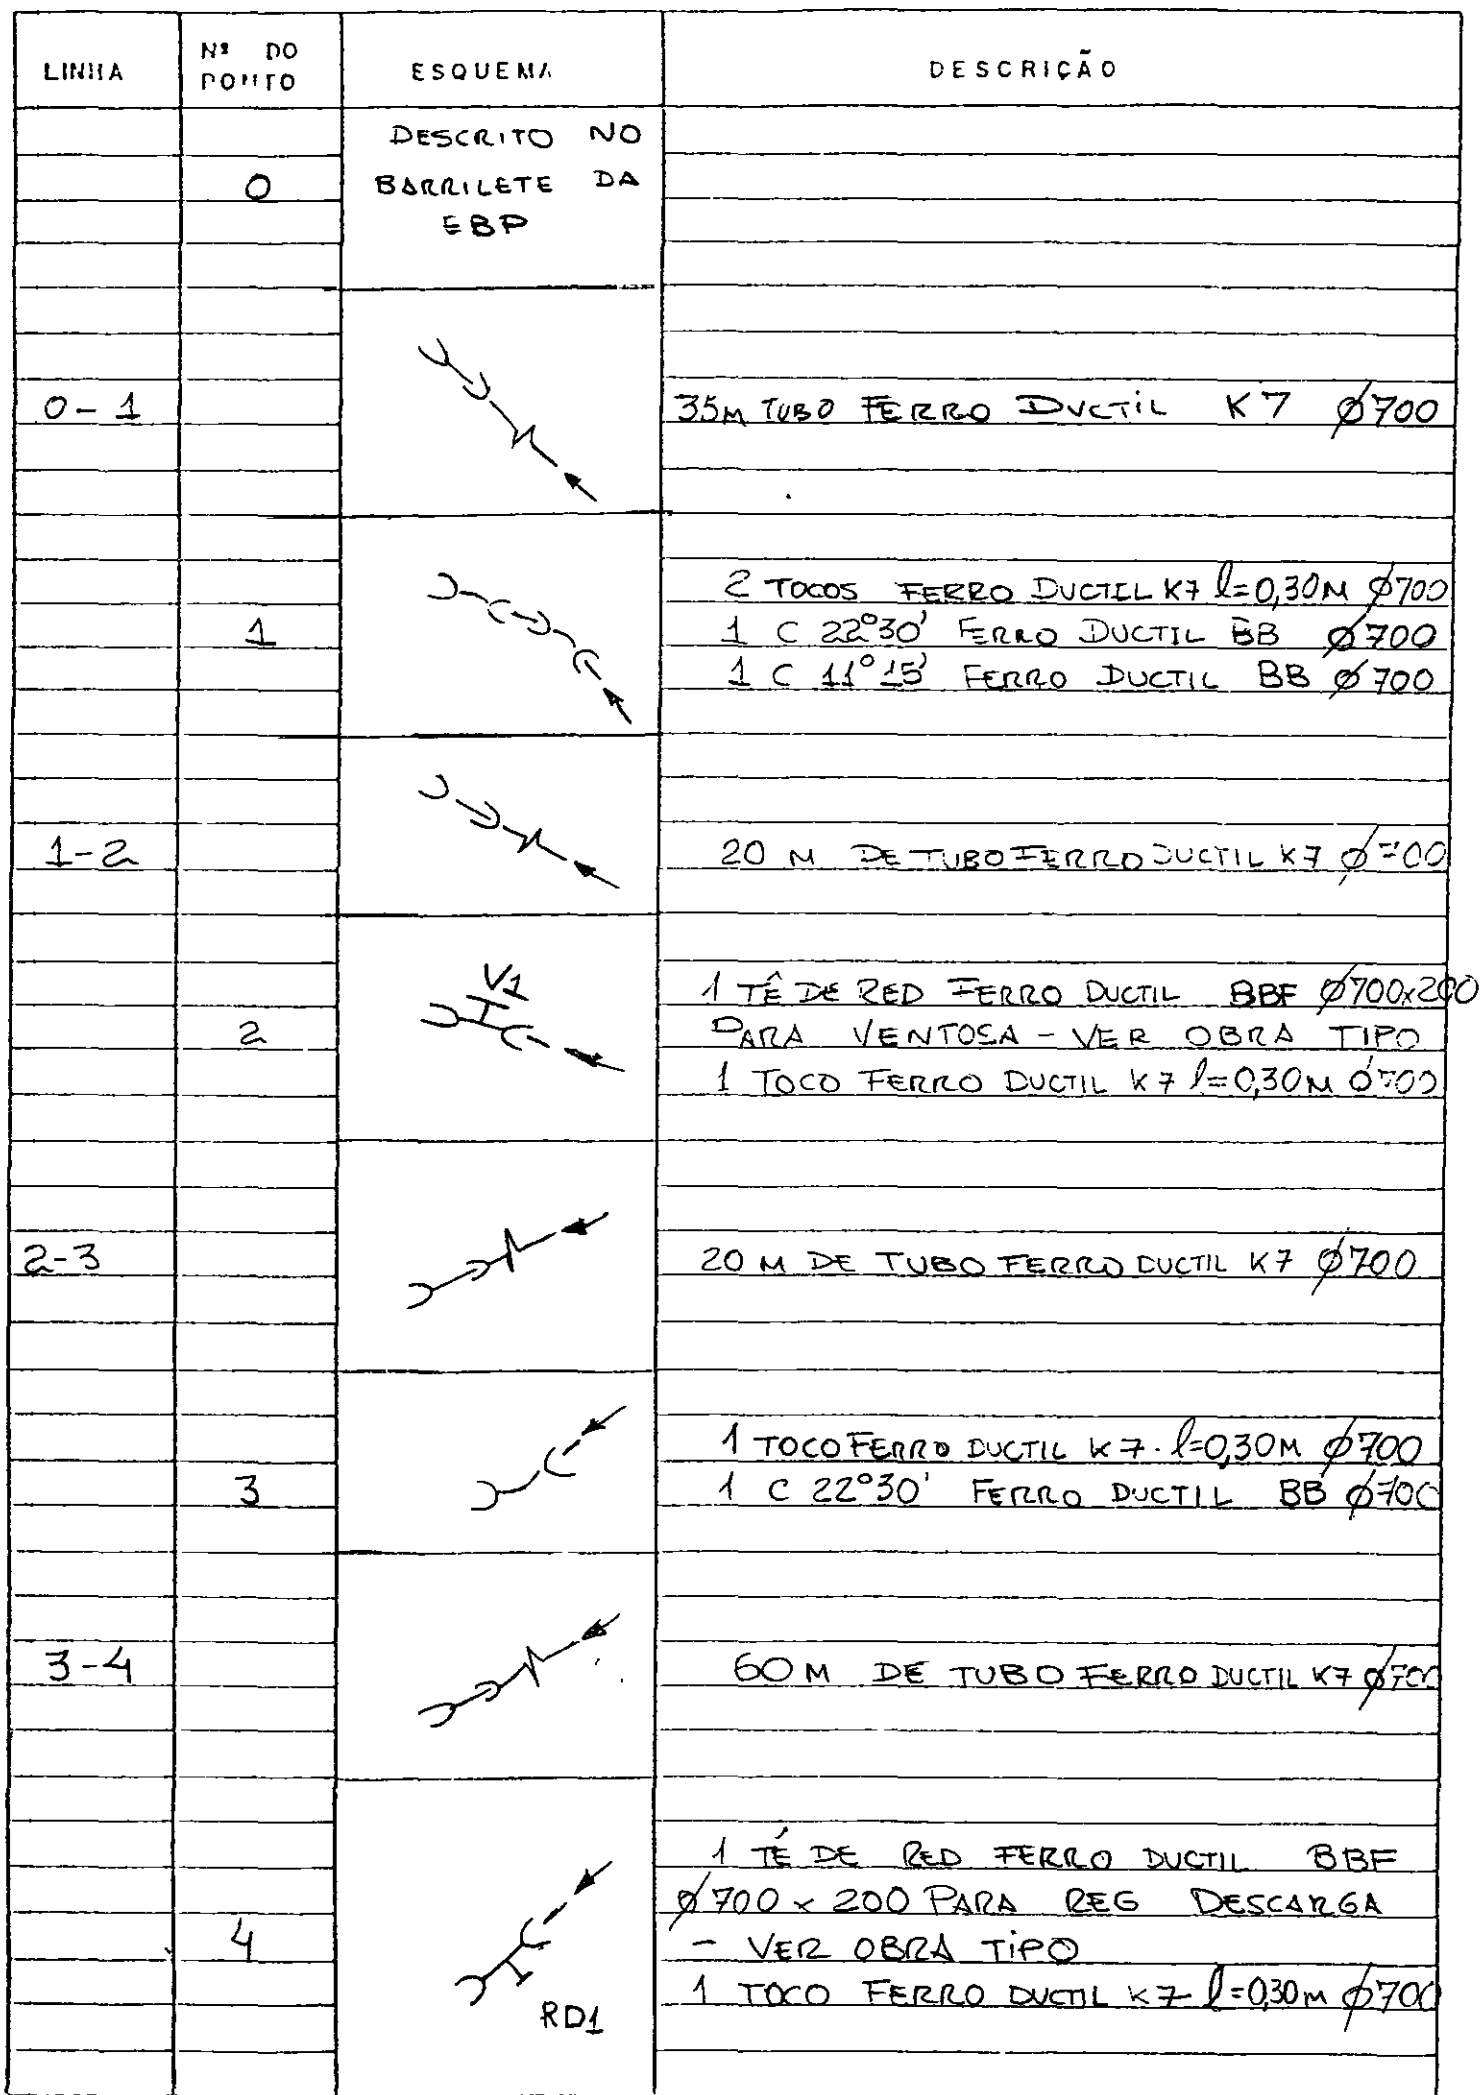 LINHA
Nº DO
PONTO
ESQUEMA
DESCRIÇÃO
0
DESCRITO NO
BARRILETE DA
EBP
0-1
35M TUBO FERRO DUCTIL K7 Ø700
1
2 TOCOS FERRO DUCTIL K7 l=0,30M Ø700
1 C 22°30' FERRO DUCTIL BB Ø700
1 C 11°15' FERRO DUCTIL BB Ø700
1-2
20 M DE TUBO FERRO DUCTIL K7 Ø700
2
V1
1 TÊ DE RED FERRO DUCTIL BBF Ø700x200
PARA VENTOSA - VER OBRA TIPO
1 TOCO FERRO DUCTIL K7 l=0,30M Ø700
2-3
20 M DE TUBO FERRO DUCTIL K7 Ø700
3
1 TOCO FERRO DUCTIL K7. l=0,30M Ø700
1 C 22°30' FERRO DUCTIL BB Ø700
3-4
60 M DE TUBO FERRO DUCTIL K7 Ø700
4
RD1
1 TÉ DE RED FERRO DUCTIL BBF
Ø700 x 200 PARA REG DESCARGA
- VER OBRA TIPO
1 TOCO FERRO DUCTIL K7 l=0,30M Ø700